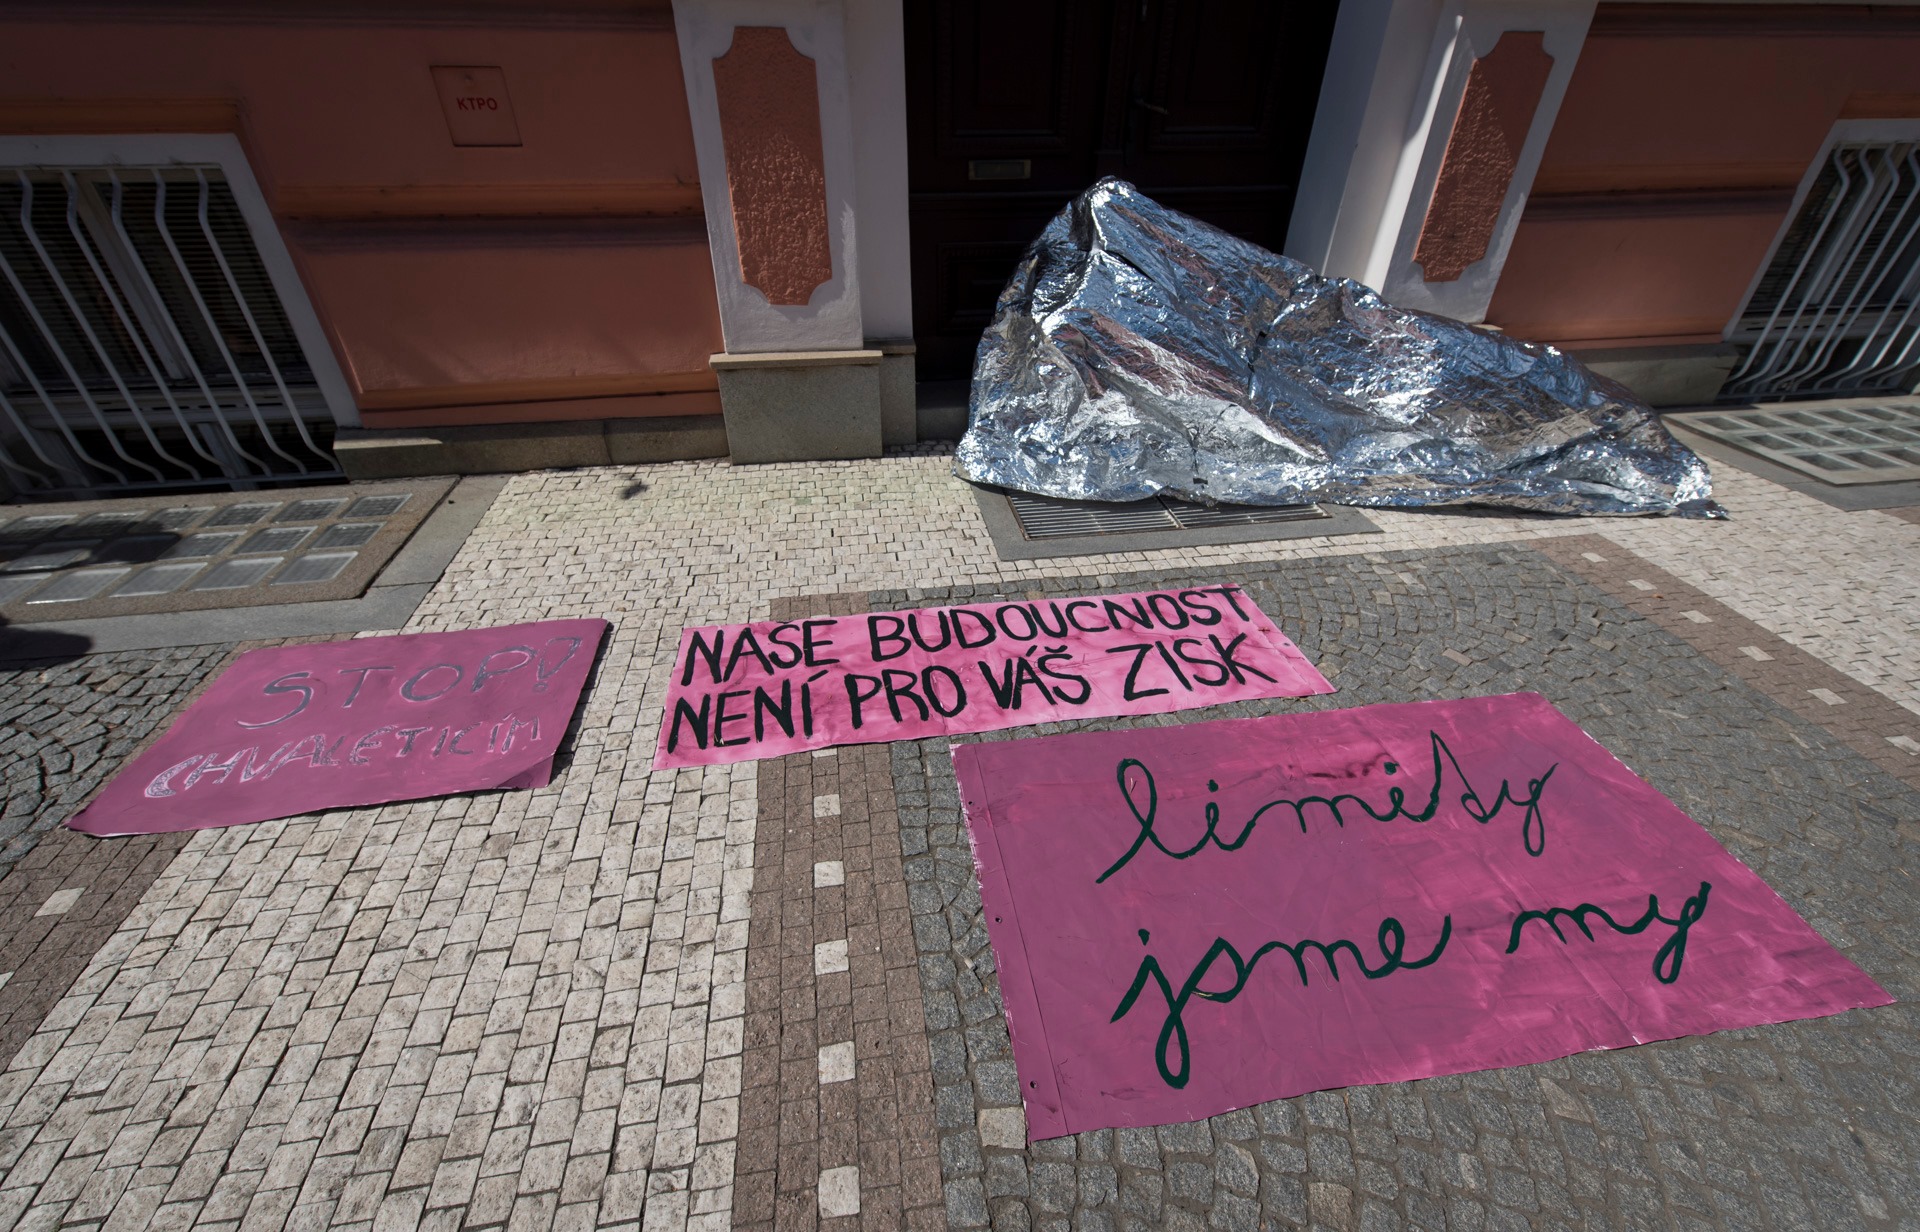 KTPO
STOP!
CHVALETICÍM
NAŠE BUDOUCNOST
NENÍ PRO VÁŠ ZISK
limity
jsme my